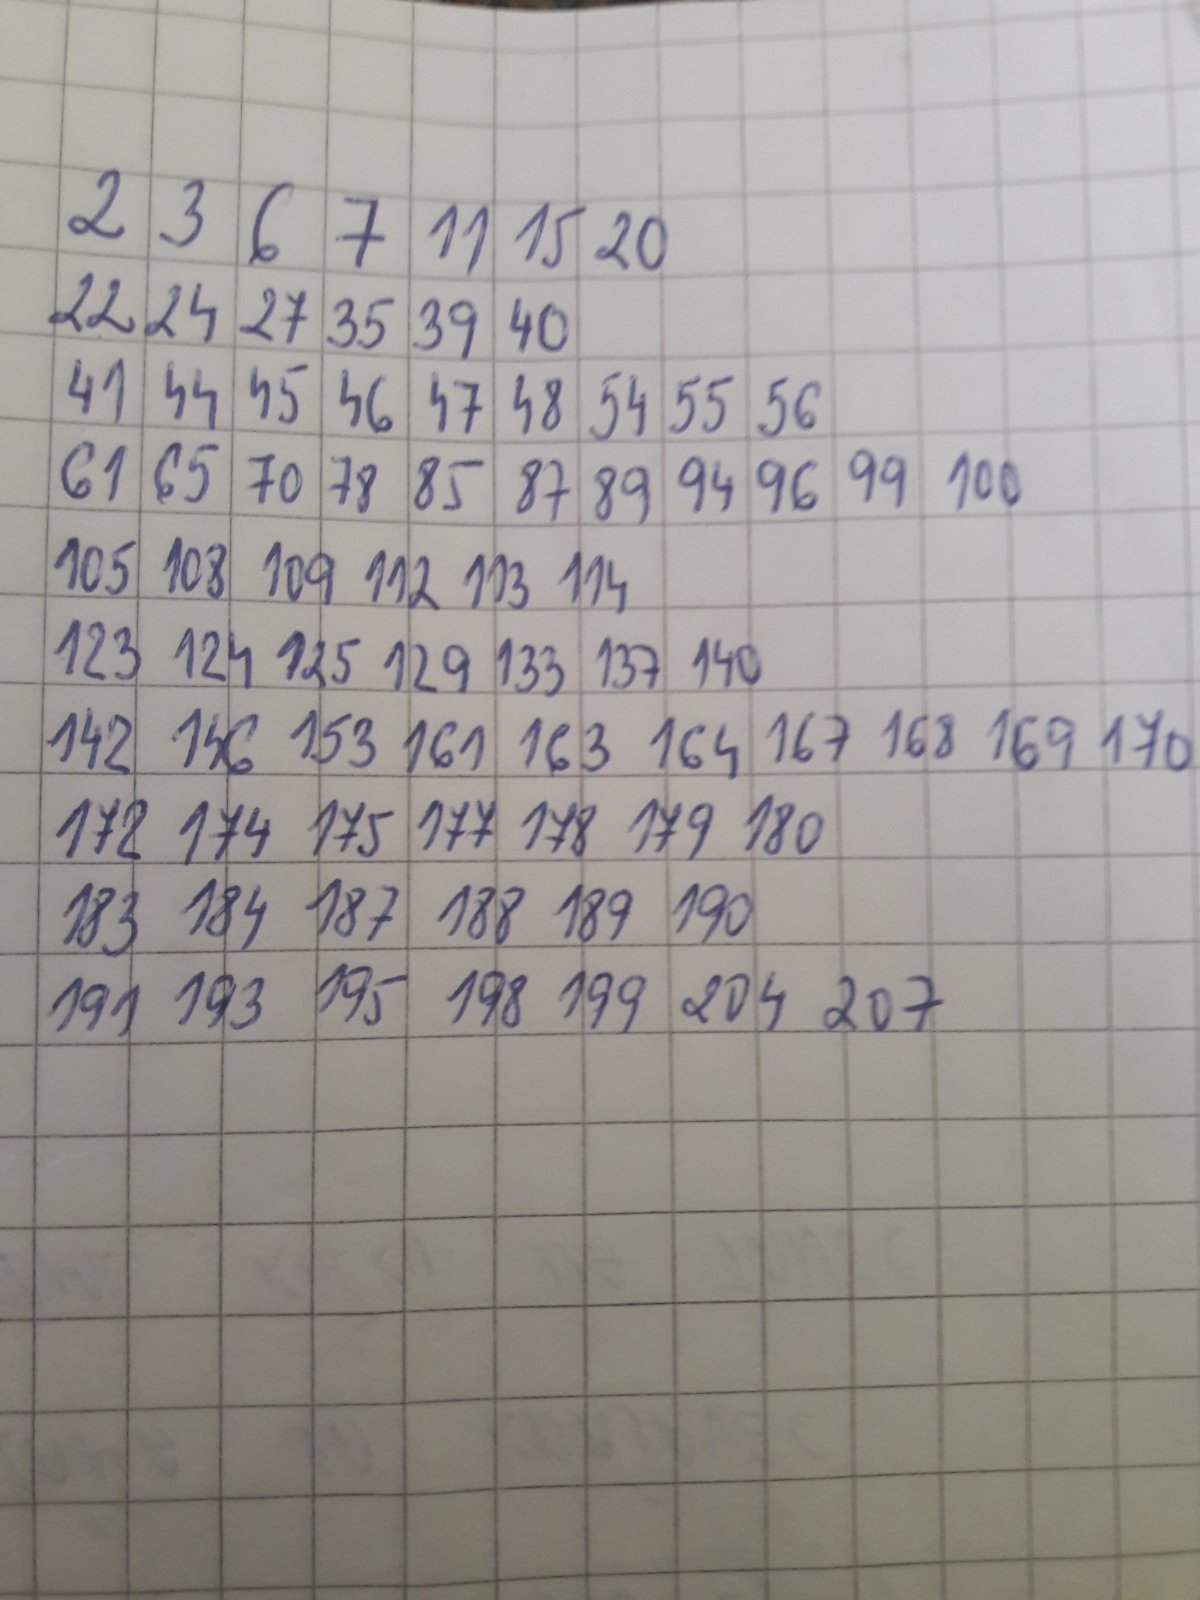 2 3 6 7 11 15 20
22 24 27 35 39 40
41 44 45 46 47 48 54 55 56
61 65 70 78 85 87 89 94 96 99 100
105 108 109 112 113 114
123 124 125 129 133 137 140
142 146 153 161 163 164 167 168 169 170
172 174 175 177 178 179 180
183 184 187 188 189 190
191 193 195 198 199 204 207